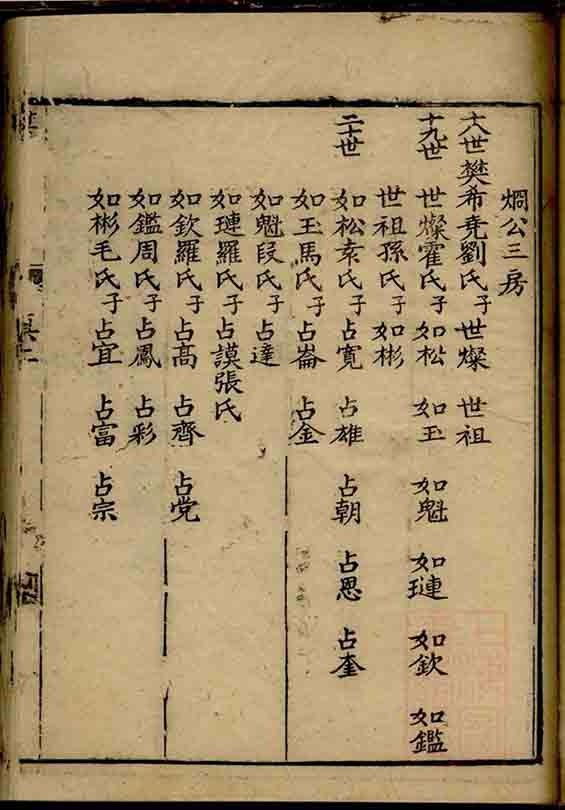 烱公三房
十八世樊希堯劉氏子世燦 世祖
十九世 世燦霍氏子如松 如玉 如魁 如璉 如欽 如鑑
世祖孫氏子如彬
二十世 如松袁氏子占寛 占雄 占朝 占恩 占奎
如玉馬氏子占崙 占金
如魁段氏子占達
如璉羅氏子占謨張氏
如欽羅氏子占高 占齊 占党
如鑑周氏子占鳳 占彩
如彬毛氏子占宜 占富 占宗